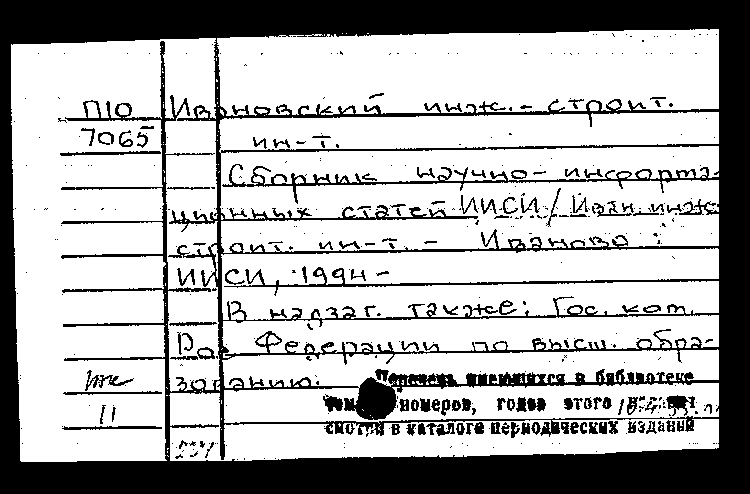 П10 Ивановский инж.-строит.
7065 ин-т.
Сборник научно-информа-
ционных статей ИИСИ / Иван. инж.
строит. ин-т. - Иваново :
ИИСИ, 1994 -
В надзаг. также: Гос. ком.
Рос. Федерации по высш. обра-
зованию.
Перечень имеющихся в библиотеке
номеров, годов этого издания
смотри в каталоге периодических изданий
11